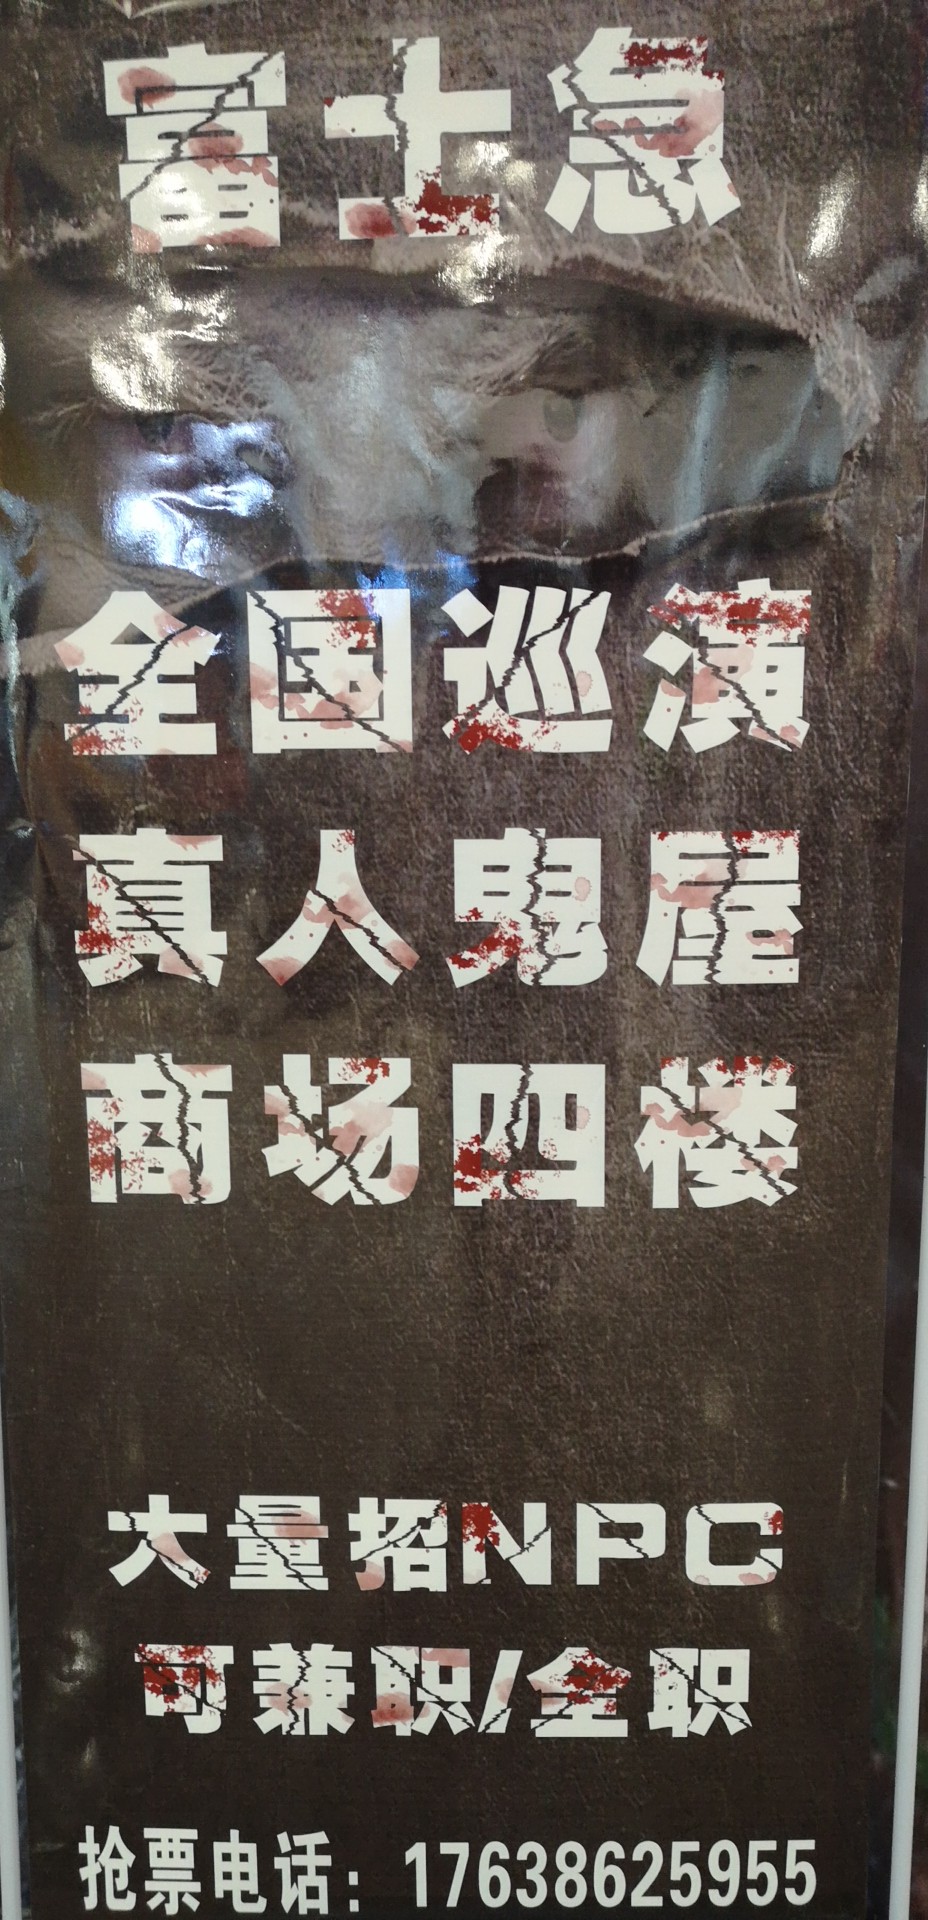 富士急
全国巡演
真人鬼屋
商场四楼
大量招NPC
可兼职/全职
抢票电话：17638625955